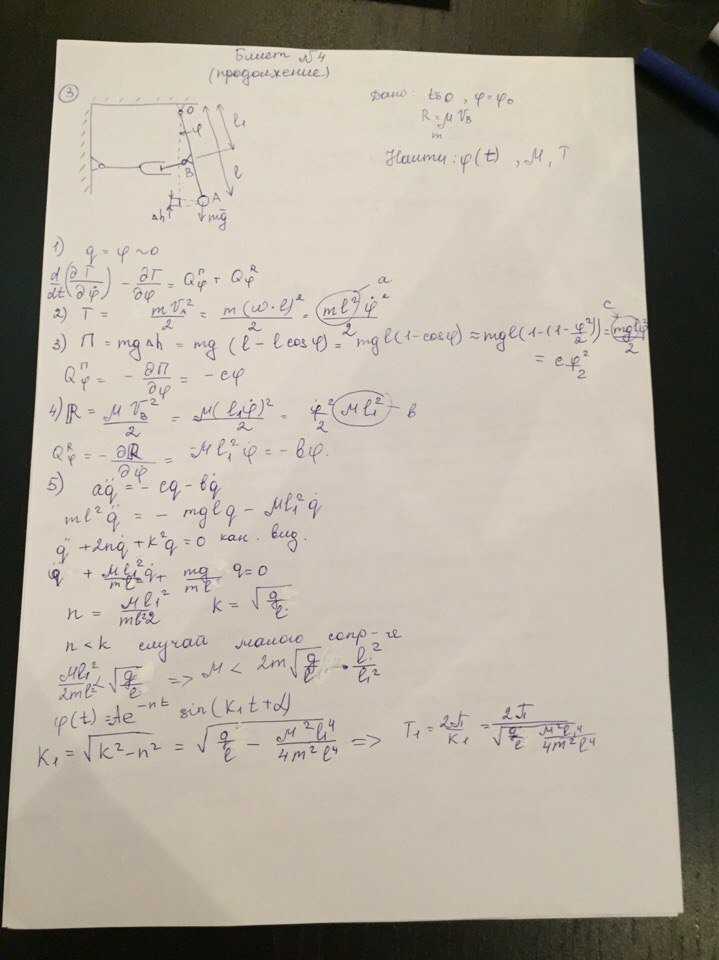 Билет №4
(продолжение)
③
Дано: t=0, φ=φ₀
R=μV_B
m
Найти: φ(t), μ, T
O
φ
l₁
l
B
A
Δh
mg
1) q = φ ~ 0
d/dt(∂T/∂φ̇) - ∂T/∂φ = Q_φ^П + Q_φ^R
a
2) T = mV_A²/2 = m(ω·l)²/2 = ml²/2 φ̇²
c
3) П = mgΔh = mg(l - l cosφ) = mgl(1-cosφ) ≈ mgl(1-(1-φ²/2)) = mglφ²/2
= cφ²/2
Q_φ^П = -∂П/∂φ = -cφ
4) R = μV_B²/2 = μ(l₁φ̇)²/2 = φ̇²/2 (μl₁²) - в
Q_φ^R = -∂R/∂φ̇ = -μl₁²φ̇ = -вφ̇.
5) aq̈ = -cq - вq̇
ml²q̈ = -mglq - μl₁²q̇
q̈ + 2nq̇ + k²q = 0 кан. вид.
q̈ + μl₁²/ml² q̇ + mg/ml q = 0
n = μl₁²/ml²2 k = √g/l
n < k случай малого сопр-я
μl₁²/2ml² < √g/l => μ < 2m√g/l · l²/l₁²
φ(t) = Ae^-nt sin(k₁t+α)
k₁ = √k²-n² = √g/l - μ²l₁⁴/4m²l⁴ => T₁ = 2π/k₁ = 2π/√g/l μ²l₁⁴/4m²l⁴